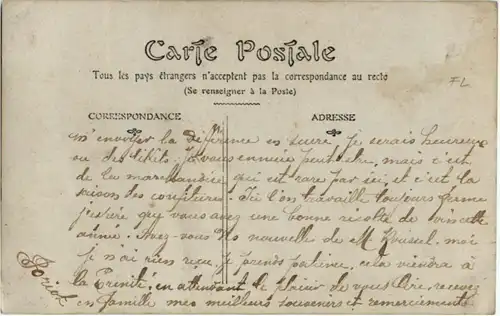 Carte Postale
Tous les pays étrangers n'acceptent pas la correspondance au recto
(Se renseigner à la Poste)
FL
CORRESPONDANCE ADRESSE
m'envoyer la différence en sucre je serais heureux
ou des . Je vous ennuie peut être, mais c'est
de la marchandise qui est rare par ici, et c'est la
saison des confitures. Ici l'on travaille toujours ferme
j'espère qu'y vous avez une bonne récolte de cette
année. Avez-vous des nouvelles de M. Roussel, moi
je n'ai rien reçu, je prends patience, cela viendra à
la Trinité, en attendant le plaisir de vous lire, recevez
en famille mes meilleurs souvenirs et remerciements